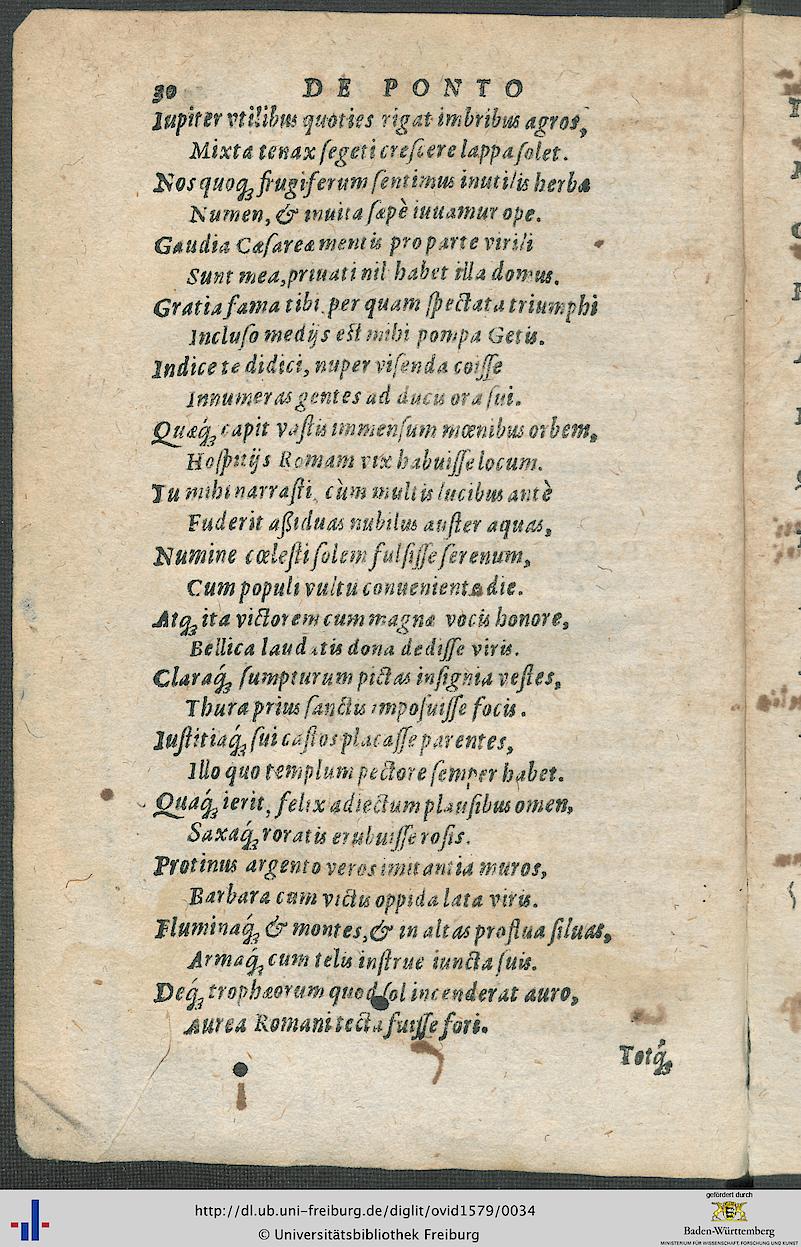 30 DE PONTO
Iupiter vtilibus quoties rigat imbribus agros,
Mixta tenax ſegeti creſcere lappa ſolet.
Nos quoq; frugiferum ſentimus inutilis herba
Numen, & inuita ſæpè iuuamur ope.
Gaudia Cæſareæ mentis pro parte virili
Sunt mea, priuati nil habet illa domus.
Gratia fama tibi per quam ſpectata triumphi
Incluſo medijs eſt mihi pompa Getis.
Indice te didici, nuper viſenda coiſſe
Innumeras gentes ad ducis ora ſui.
Quæq́; capit vaſtis immenſum mœnibus orbem,
Hoſpitijs Romam vix habuiſſe locum.
Tu mihi narraſti, cùm multis lucibus antè
Fuderit aßiduas nubilus auſter aquas,
Numine cœleſti ſolem fulſiſſe ſerenum,
Cum populi vultu conueniente die.
Atq; ita victorem cum magnæ vocis honore,
Bellica laudatis dona dediſſe viris.
Claraq́; ſumpturum pictas inſignia veſtes,
Thura prius ſanctis impoſuiſſe focis.
Iuſtitiaq́; ſui caſtos placaſſe parentes,
Illo quo templum pectore ſemper habet.
Quaq́; ierit, felix adiectum plauſibus omen,
Saxaq́; roratis erubuiſſe roſis.
Protinus argento veros imitantia muros,
Barbara cum victis oppida lata viris.
Fluminaq́; & montes, & in altas proflua ſiluas,
Armaq́; cum telis inſtrue iuncta ſuis.
Deq́; trophæorum quod ſol incenderat auro,
Aurea Romani tecta fuiſſe fori.
Totq́;
http://dl.ub.uni-freiburg.de/diglit/ovid1579/0034
© Universitätsbibliothek Freiburg
gefördert durch
Baden-Württemberg
MINISTERIUM FÜR WISSENSCHAFT, FORSCHUNG UND KUNST